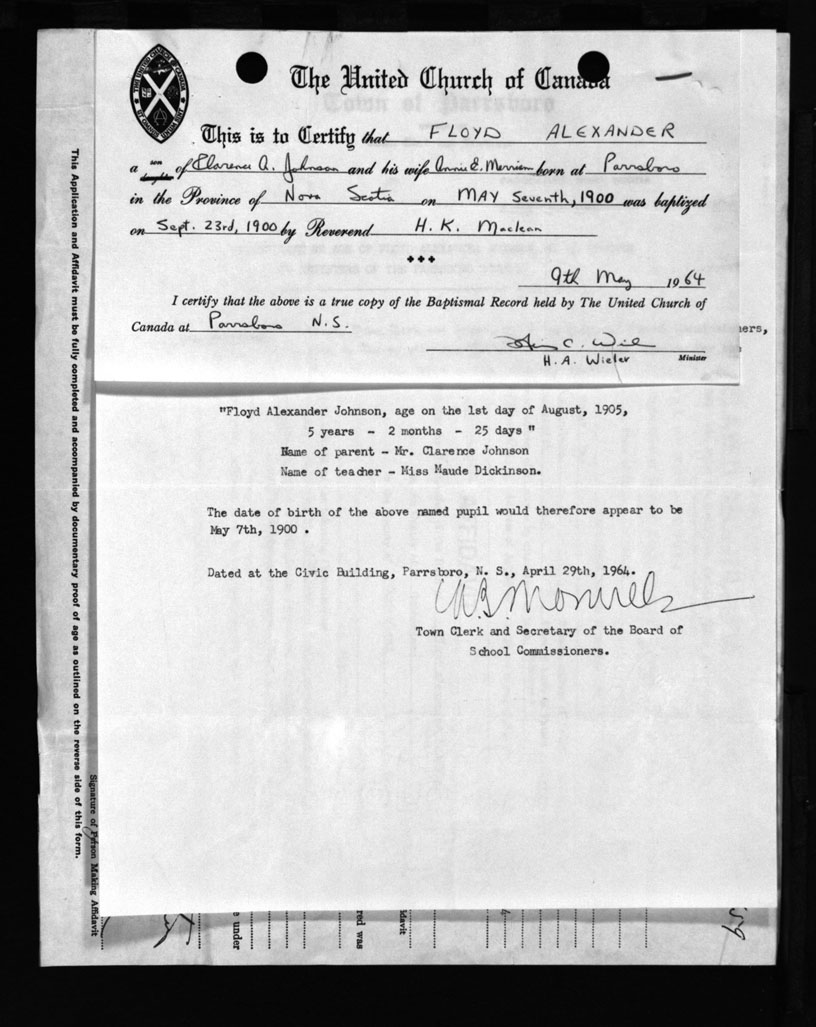 The United Church of Canada
This is to Certify that FLOYD ALEXANDER
a son daughter of Clarence A. Johnson and his wife Annie E. Merriam born at Parrsboro
in the Province of Nova Scotia on MAY Seventh, 1900 was baptized
on Sept. 23rd, 1900 by Reverend H. K. Maclean
9th May 1964
I certify that the above is a true copy of the Baptismal Record held by The United Church of
Canada at Parrsboro N.S.
H. A. Wieler Minister
ers,
"Floyd Alexander Johnson, age on the 1st day of August, 1905,
5 years - 2 months - 25 days "
Name of parent - Mr. Clarence Johnson
Name of teacher - Miss Maude Dickinson.
The date of birth of the above named pupil would therefore appear to be
May 7th, 1900 .
Dated at the Civic Building, Parrsboro, N. S., April 29th, 1964.
Town Clerk and Secretary of the Board of
School Commissioners.
This Application and Affidavit must be fully completed and accompanied by documentary proof of age as outlined on the reverse side of this form.
Signature of Person Making Affidavit
e under
red was
idavit
59